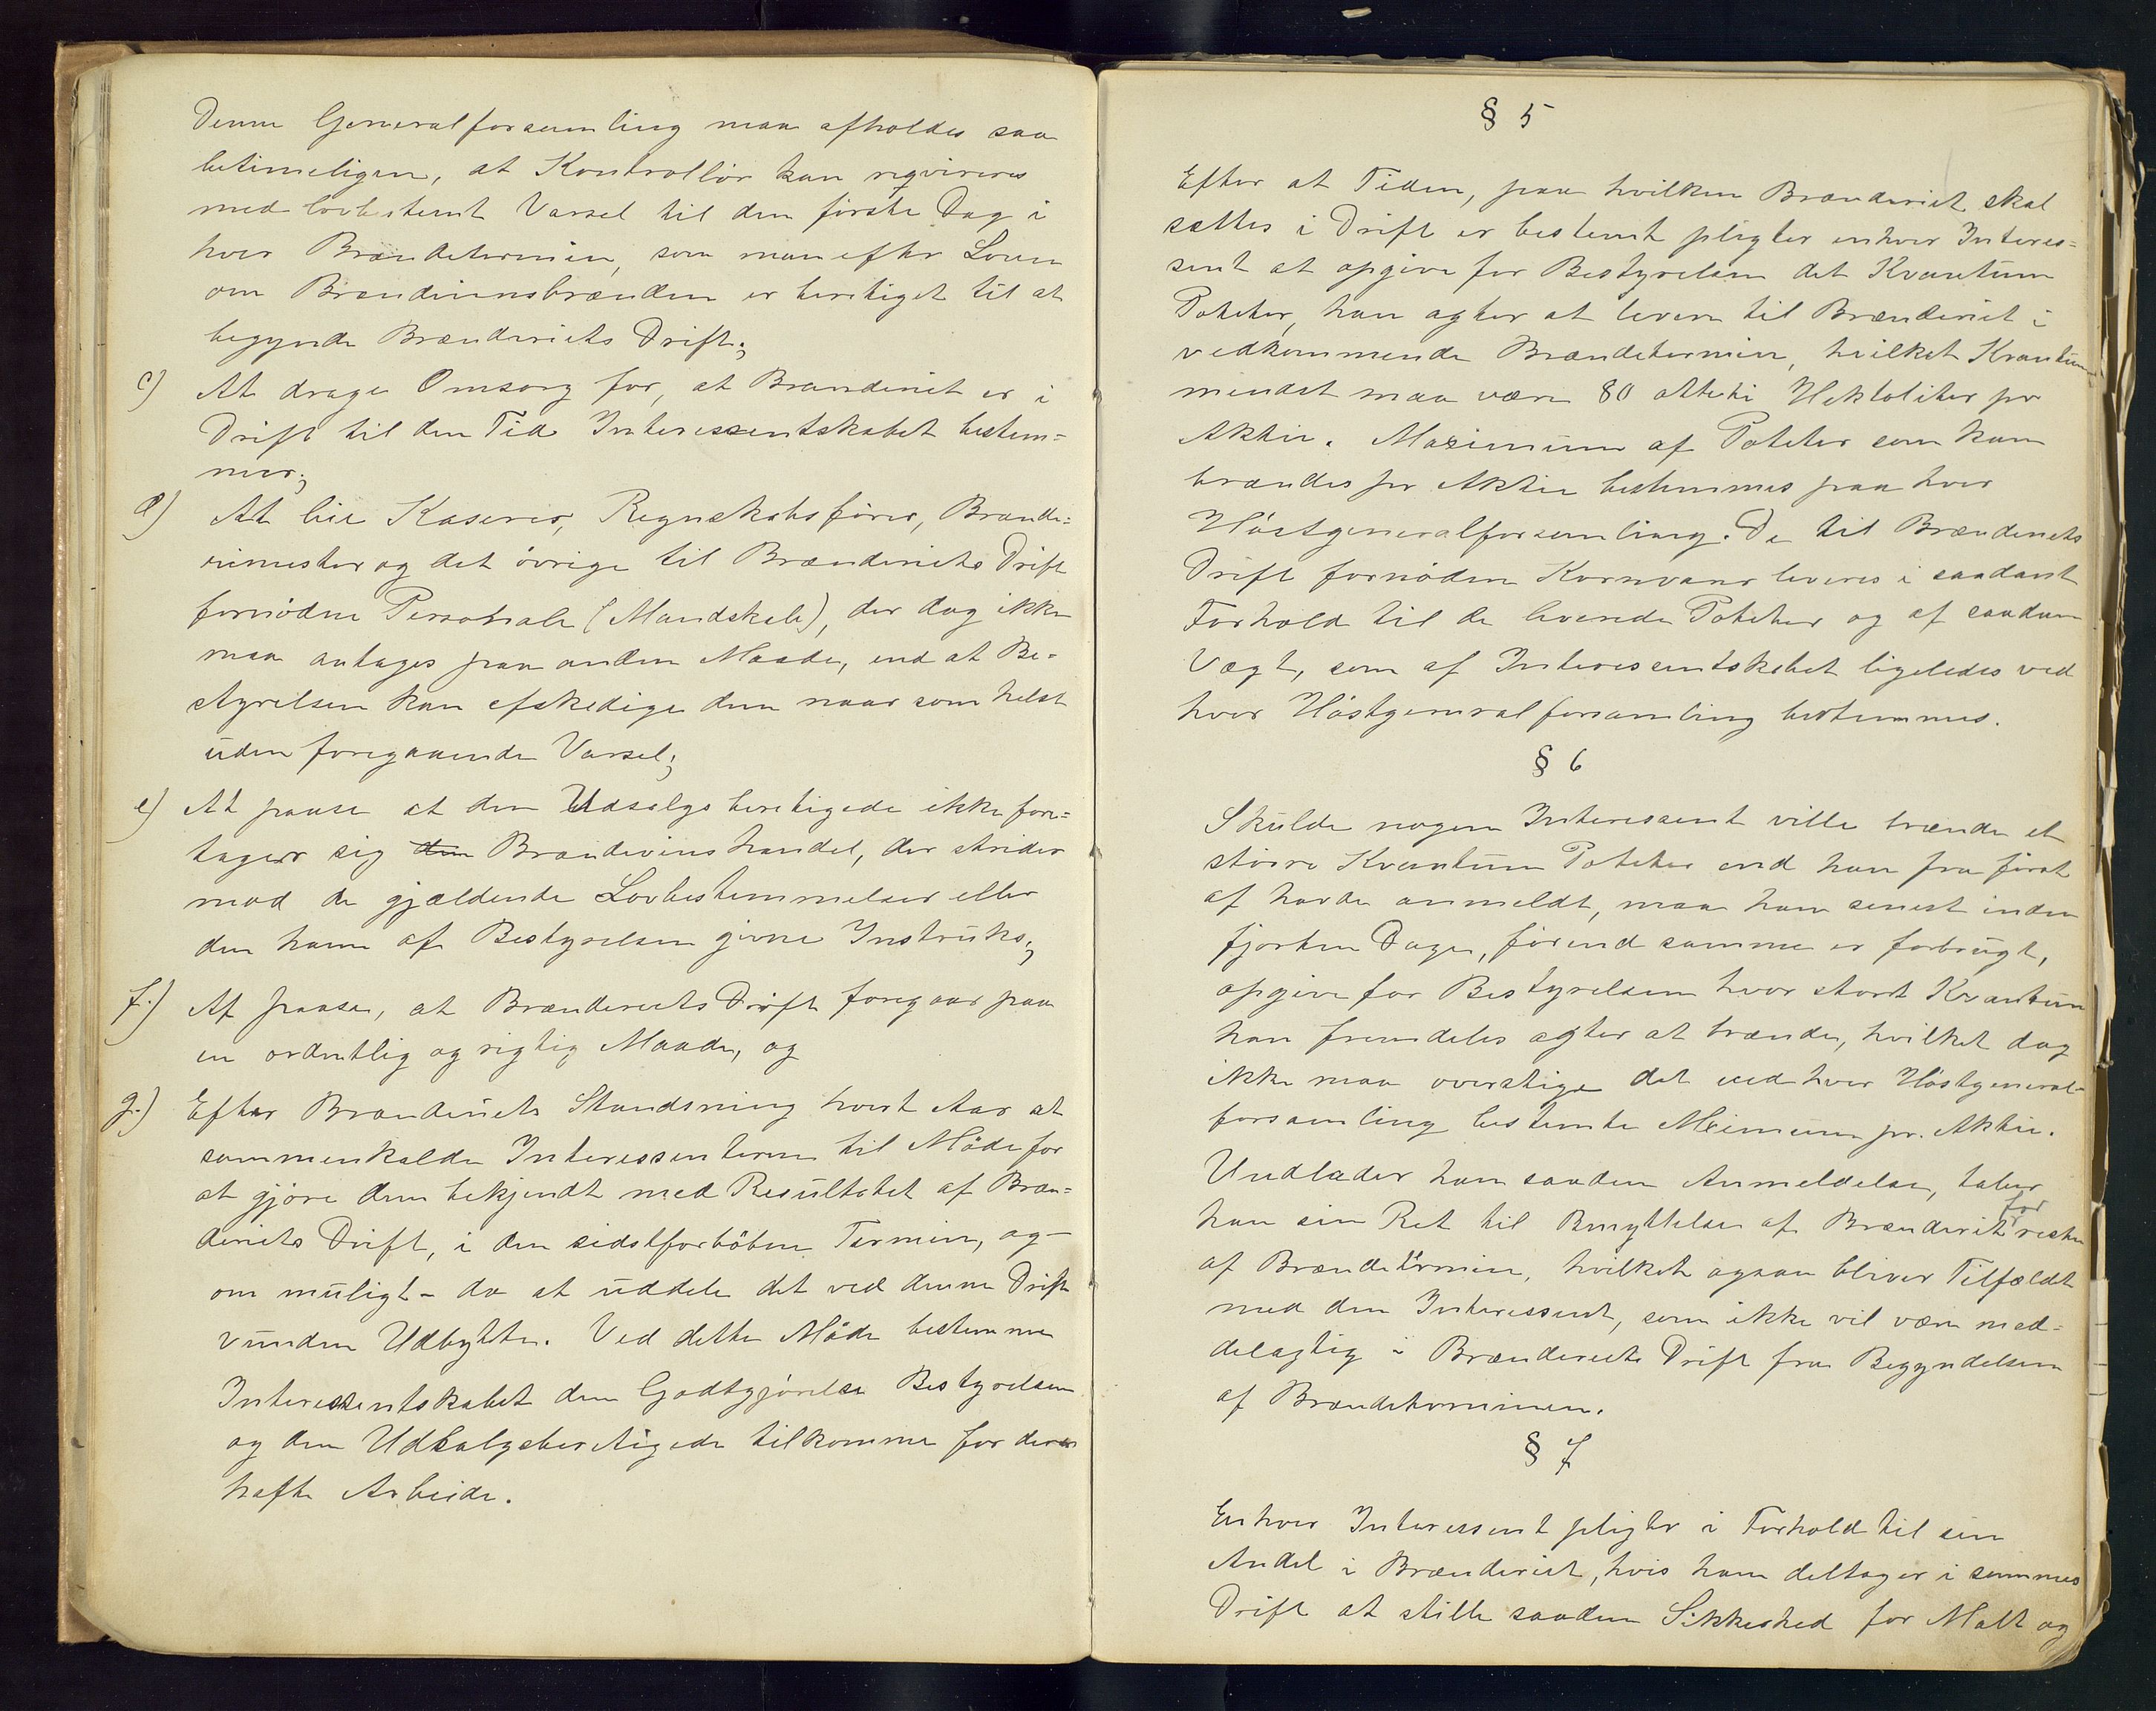 Denne Generalforsamling maa afholdes saa
betimeligen, at Kontrollör kan reqvireres
med lovbestemt Varsel til den förste Dag i
hver Brændetermin, som man efter Loven
om Brændevinsbrænden er berettiget til at
begynde Brænderiets Drift;
c) At drage Omsorg for, at Brænderiet er i
Drift til den Tid Interessentskabet bestem=
mer;
d) At leie Kaserer, Regnskabsförer, Brænde=
rimester og det övrige til Brænderiets Drift
fornödne Personale (Mandskab), der dog ikke
maa antages paa anden Maade, end at Be=
styrelsen kan afskedige dem naar som helst
uden foregaaende Varsel;
e) At paase at den Udsalgsberettigede ikke fore=
tager sig den Brændevinshandel, der strider
mod de gjældende Lovbestemmelser eller
den ham af Bestyrelsen givne Instruks;
f.) At paase, at Brænderiets Drift foregaar paa
en ordentlig og rigtig Maade, og
g.) Efter Brænderiets Standsning hvert Aar at
sammenkalde Interessenterne til Möde for
at gjöre dem bekjendt med Resultatet af Bræn=
deriets Drift, i den sidstforlöbne Termin, og -
om muligt - da at uddele det ved denne Drift
vundne Udbytte. Ved dette Möde bestemme
Interessentskabet den Godtgjörelse Bestyrelsen
og den Udsalgsberettigede tilkomme for deres
hafte Arbeide.
§ 5
Efter at Tiden, paa hvilken Brænderiet skal
sættes i Drift er bestemt pligter enhver Interes=
sent at opgive for Bestyrelsen det Kvantum
Poteter, han agter at levere til Brænderiet i
vedkommende Brændetermin, hvilket Kvantum
mindst maa være 80 otteti Hektoliter pr
Aktie. Maximum af Poteter som kan
brændes pr Aktie bestemmes paa hver
Höstgeneralforsamling. De til Brænderiets
Drift fornödne Kornvarer leveres i saadant
Forhold til de leverede Poteter og af saadan
Vægt, som af Interessentskabet ligeledes ved
hver Höstgeneralforsamling bestemmes.
§ 6
Skulde nogen Interessent ville brænde et
större Kvantum Poteter end han fra först
af havde anmeldt, maa han senest inden
fjorten Dage, förend samme er forbrugt,
opgive for Bestyrelsen hvor stort Kvantum
han fremdeles agter at brænde, hvilket dog
ikke maa overstige det ved hver Höstgeneral-
forsamling bestemte Maximum pr. Aktie.
Undlader han saadan Anmeldelse, taber
han sin Ret til Benyttelse af Brænderiet for resten
af Brændeterminen, hvilket ogsaa bliver Tilfældt
med den Interessent, som ikke vil være med=
delagtig i Brænderiets Drift fra Begyndelsen
af Brændeterminen.
§ 7
Enhver Interessent pligter i Forhold til sin
Andel i Brænderiet, hvis han deltager i sammes
Drift at stille saadan Sikkerhed for Malt og